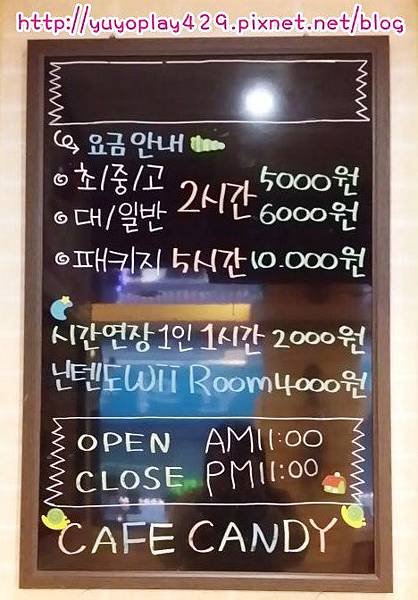 http://yuyoplay429.pixnet.net/blog
요금 안내
초/중/고 2시간 5000원
대/일반 6000원
패키지 5시간 10.000원
시간연장 1인 1시간 2000원
닌텐도Wii Room 4000원
OPEN AM11:00
CLOSE PM11:00
CAFE CANDY